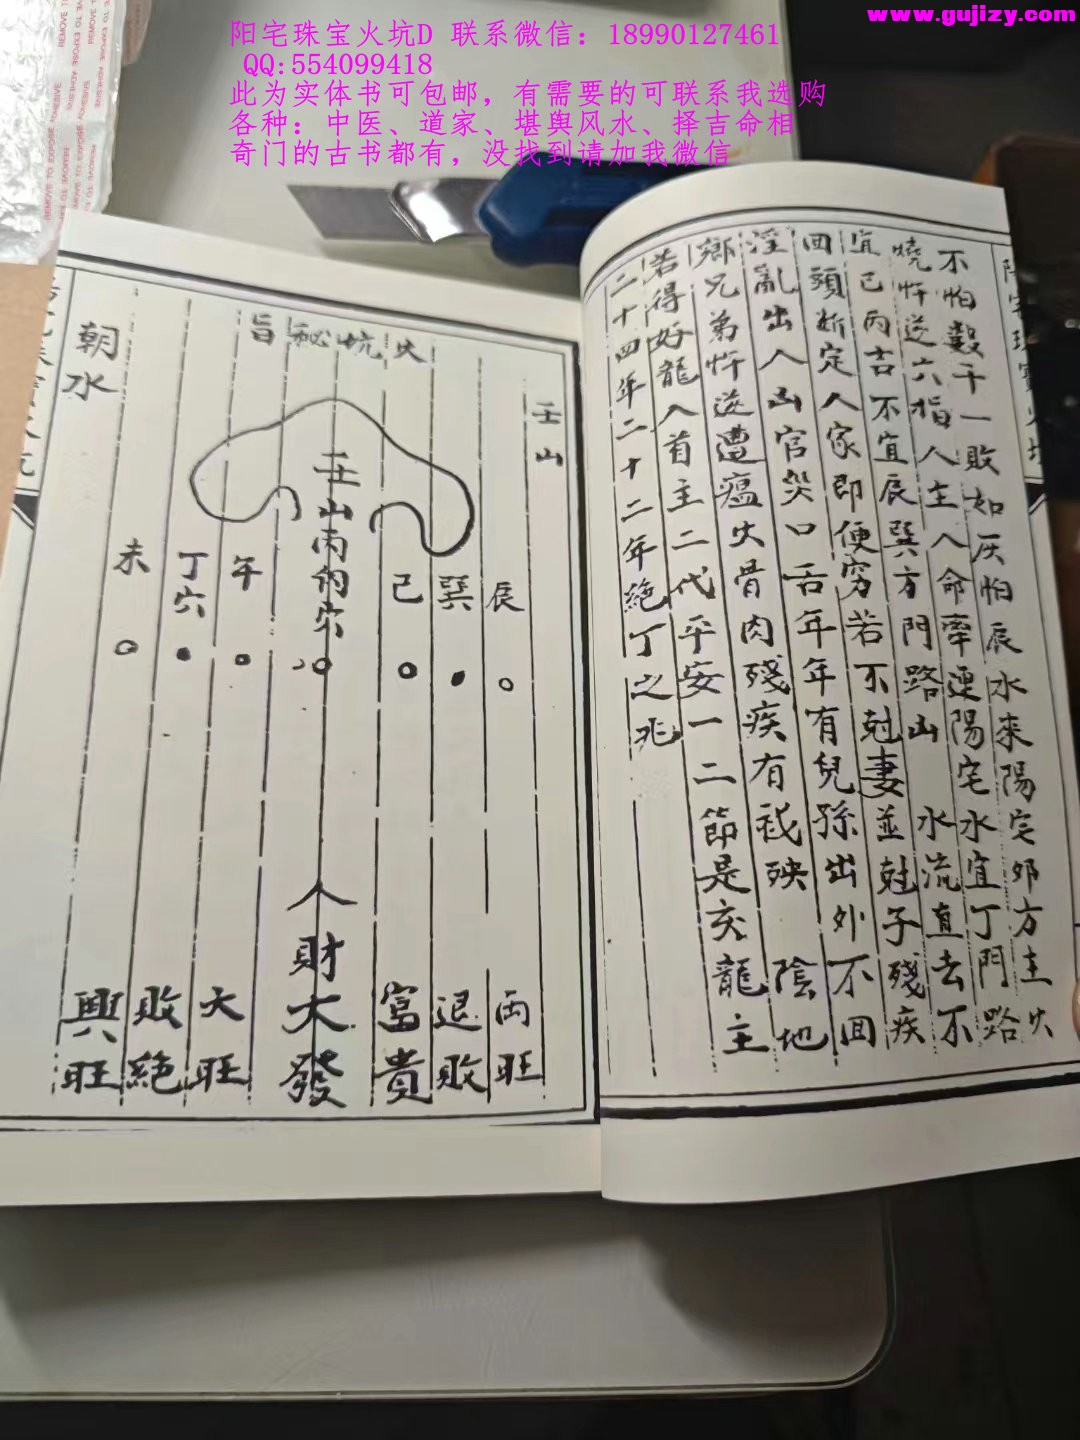 www.gujizy.com
阳宅珠宝火坑D 联系微信：18990127461
QQ:554099418
此为实体书可包邮，有需要的可联系我选购
各种：中医、道家、堪舆风水、择吉命相
奇门的古书都有，没找到请加我微信
不怕艱千一敗如灰怕辰水来陽宅邜方主火
燒忤逆六指人主人命牽連陽宅水宜丁門路
宜己丙古不宜辰巽方門路山 水流直去不
回頭断定人家即便穷若不尅妻並尅子殘疾
淫亂出入山官災口舌年年有兒孫出外不回
鄉兄弟忤逆遭瘟火骨肉殘疾有禍殃 陰地
若得好龍入首主二代平安一二節是亥龍主
二十四年二十二年絕丁之兆
壬山
火坑秘旨
辰 雨旺
巽 退敗
己 富貴
壬山丙向穴 人財大發
午 大旺
丁穴 敗絕
未 興旺
朝水
REMOVE TO EXPOSE ADHESIVE